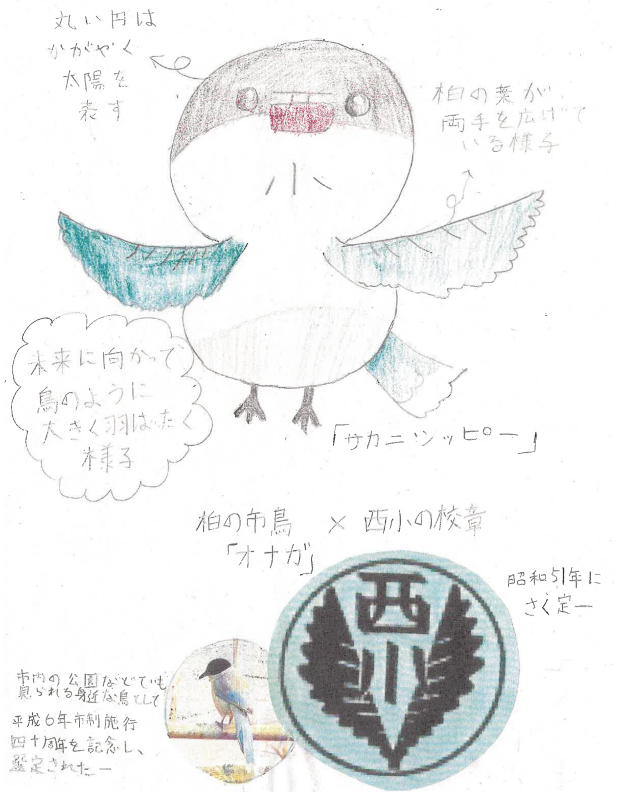 丸い円は
かがやく
太陽を
表す
柏の葉が
両手を広げて
いる様子
小
未来に向かって
鳥のように
大きく羽ばたく
様子
「サカニシッピー」
柏の市鳥 × 西小の校章
「オナガ」
昭和51年に
さく定ー
西
小
市内の公園などでも
見られる身近な鳥として
平成6年市制施行
四十周年を記念し、
選定されたー